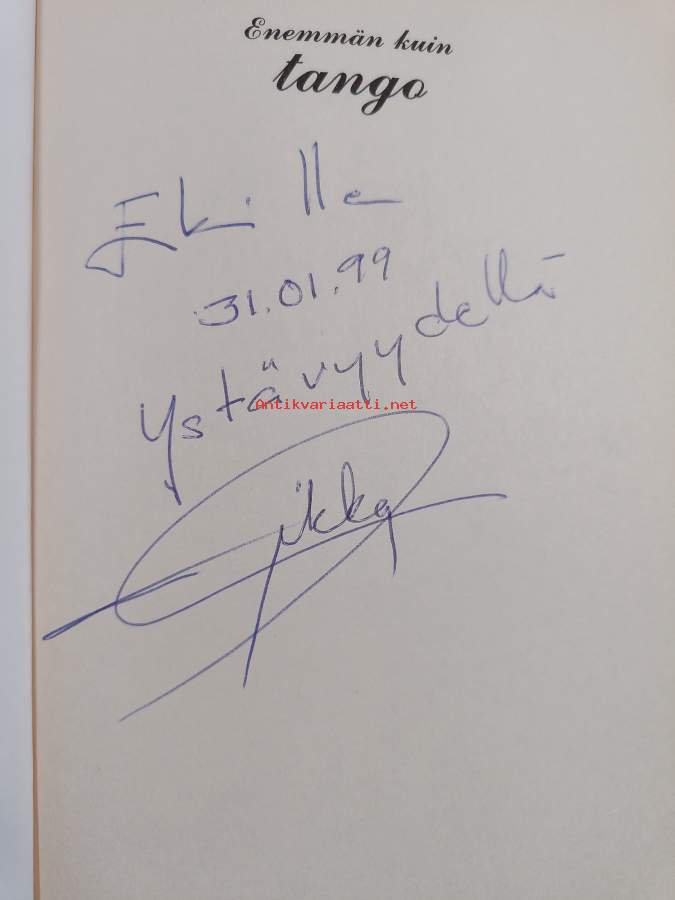 Enemmän kuin
tango
Ekille
31.01.99
Ystävyydellä
Antikvariaatti.net